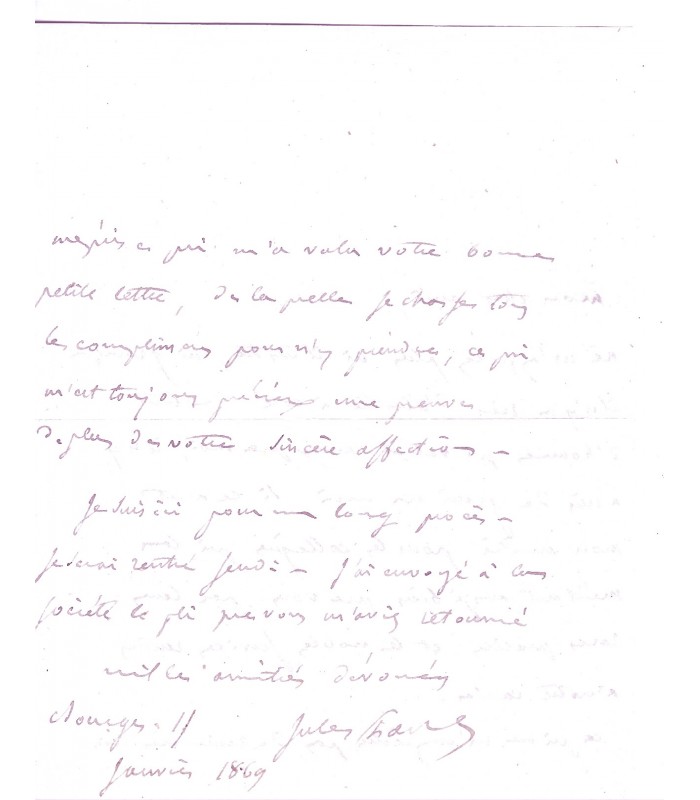 mépris ce qui m'a valu votre bonne
petite lettre, de laquelle je chasse tous
les complimens pour n'y prendre, ce qui
m'est toujours précieux une preuve
de plus de votre sincère affection –
Je suis ici pour un long procès –
je serai rentré jeudi – J'ai envoyé à la
société le pli que vous m'aviez retourné
mille amitiés dévouées
Bourges. 11 Jules Favre
Janvier 1869